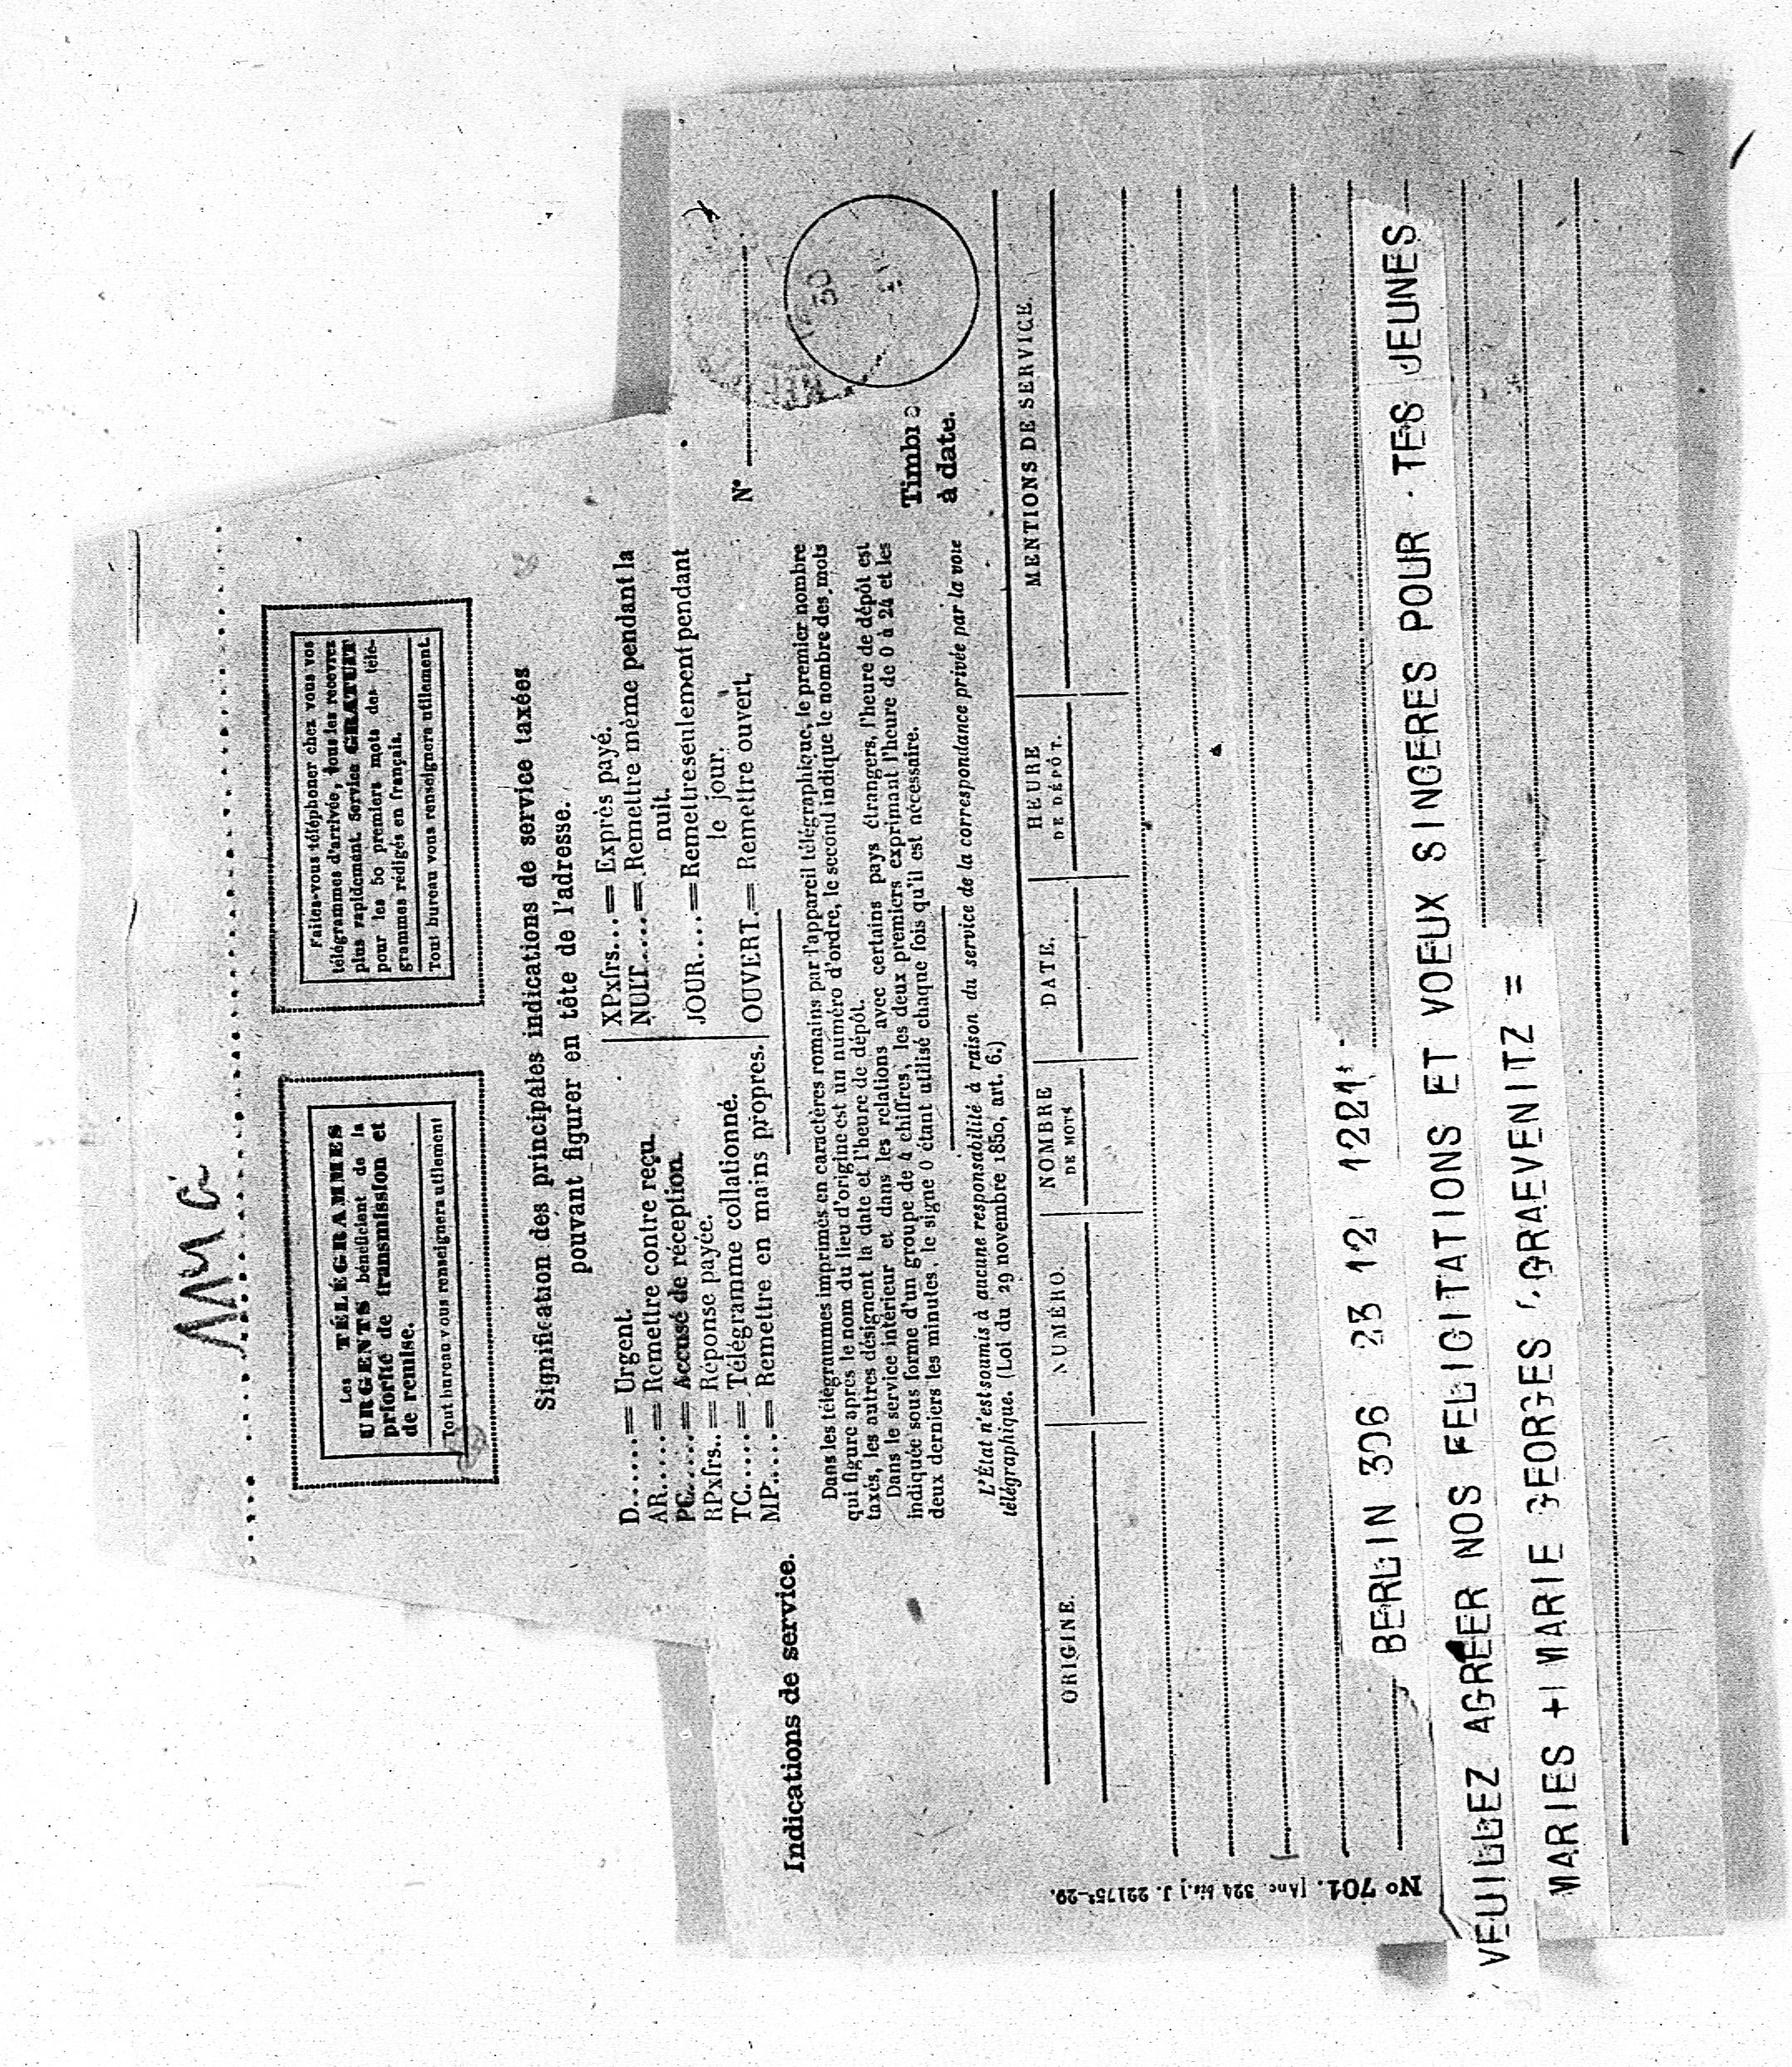 Les TÉLÉGRAMMES
URGENTS bénéficient de la
priorité de transmission et
de remise.
Tout bureau vous renseignera utilement
Faites-vous téléphoner chez vous vos
télégrammes d'arrivée, vous les recevrez
plus rapidement. Service GRATUIT
pour les 50 premiers mots des télé-
grammes rédigés en français.
Tout bureau vous renseignera utilement.
Signification des principales indications de service taxées
pouvant figurer en tête de l'adresse.
D......= Urgent.
AR.....= Remettre contre reçu.
PC.....= Accusé de réception.
RPxfrs..= Réponse payée.
TC.....= Télégramme collationné.
MP.....= Remettre en mains propres.
XPxfrs...= Exprès payé.
NUIT.....= Remettre même pendant la
nuit.
JOUR....= Remettre seulement pendant
le jour.
OUVERT.= Remettre ouvert.
Indications de service.
Dans les télégrammes imprimés en caractères romains par l'appareil télégraphique, le premier nombre
qui figure après le nom du lieu d'origine est un numéro d'ordre, le second indique le nombre des mots
taxés, les autres désignent la date et l'heure de dépôt.
Dans le service intérieur et dans les relations avec certains pays étrangers, l'heure de dépôt est
indiquée sous forme d'un groupe de 4 chiffres, les deux premiers exprimant l'heure de 0 à 24 et les
deux derniers les minutes, le signe 0 étant utilisé chaque fois qu'il est nécessaire.
L'État n'est soumis à aucune responsabilité à raison du service de la correspondance privée par la voie
télégraphique. (Loi du 29 novembre 1850, art. 6.)
N°
Timbre
à date.
ORIGINE. NUMÉRO. NOMBRE DE MOTS DATE. HEURE DE DÉPÔT. MENTIONS DE SERVICE.
No 701. [Anc. 324 bis.] J. 22175²-29.
BERLIN 306 23 12 1221
VEUILLEZ AGREER NOS FELICITATIONS ET VOEUX SINCERES POUR TES JEUNES
MARIES + MARIE GEORGES GRAEVENITZ =